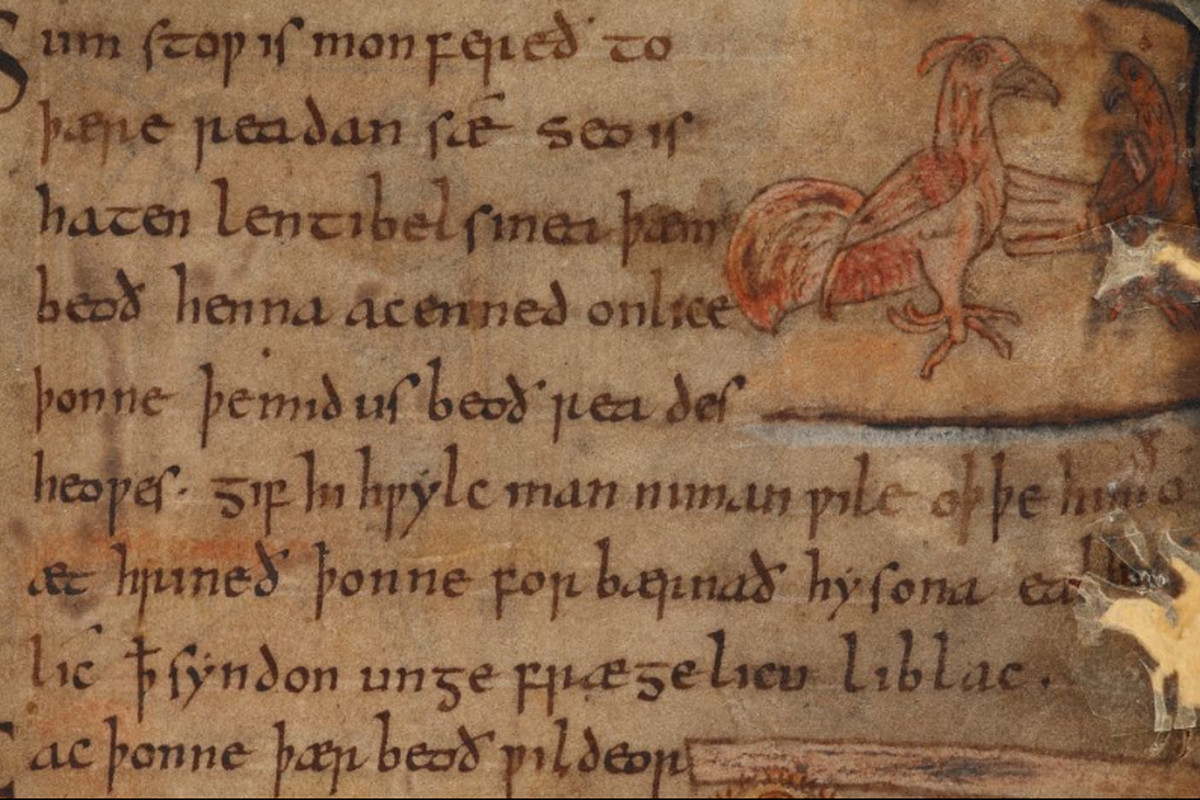 Sum stoƿ is mon fereð to
þære readan sǽ seo is
haten lentibelsinea þam
beoð henna acenned onlice
þonne þe mid us beoð rea des
heoƿes· gif hi hƿylc man niman ƿile oþþe
æt hrineð þonne for bærnað hy sona
lic ꝥ syndon unge frægelicu liblac.
Eac þonne þær beoð ƿildeor